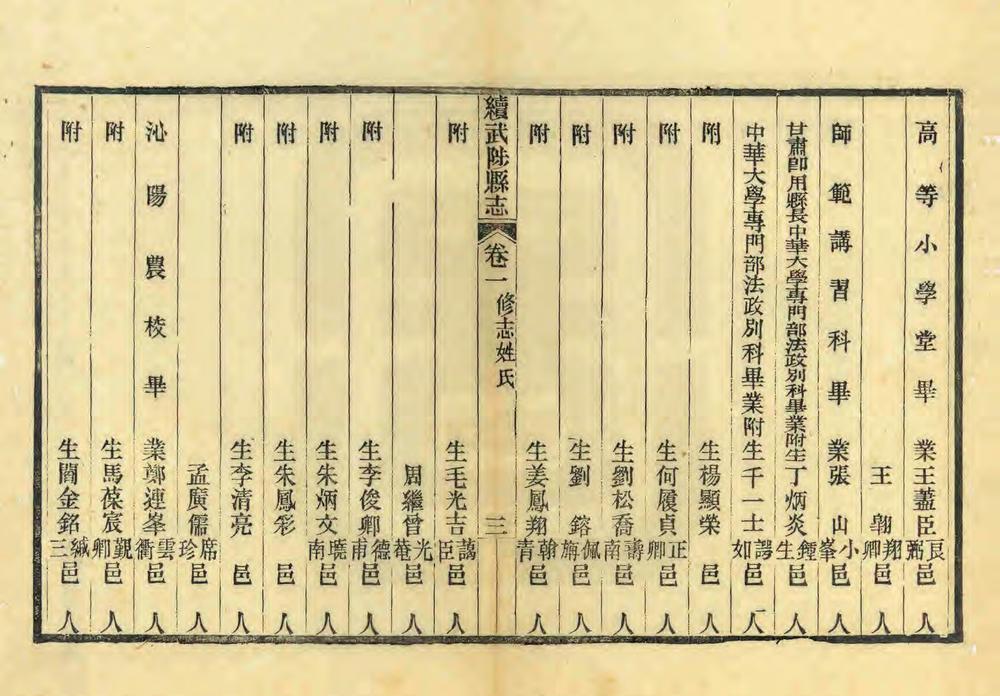 高等小學堂畢業王藎臣良弼邑人
王翶翔卿邑人
師範講習科畢業張山小峯邑人
甘肅卽用縣長中華大學專門部法政別科畢業附生丁炳炎鍾生邑人
中華大學專門部法政別科畢業附生千一士諤如邑人
附生楊顯榮邑人
附生何履貞正卿邑人
附生劉松喬壽南邑人
附生劉鎔佩旃邑人
附生姜鳳翔翰青邑人
續武陟縣志
卷一
修志姓氏
三
附生毛光吉藹臣邑人
周繼曾光菴邑人
附生李俊卿德甫邑人
附生朱炳文曉南邑人
附生朱鳳彩邑人
附生李清亮邑人
孟廣儒席珍邑人
沁陽農校畢業鄭連峯雲衢邑人
附生馬葆宸覲卿邑人
附生閻金銘緘三邑人